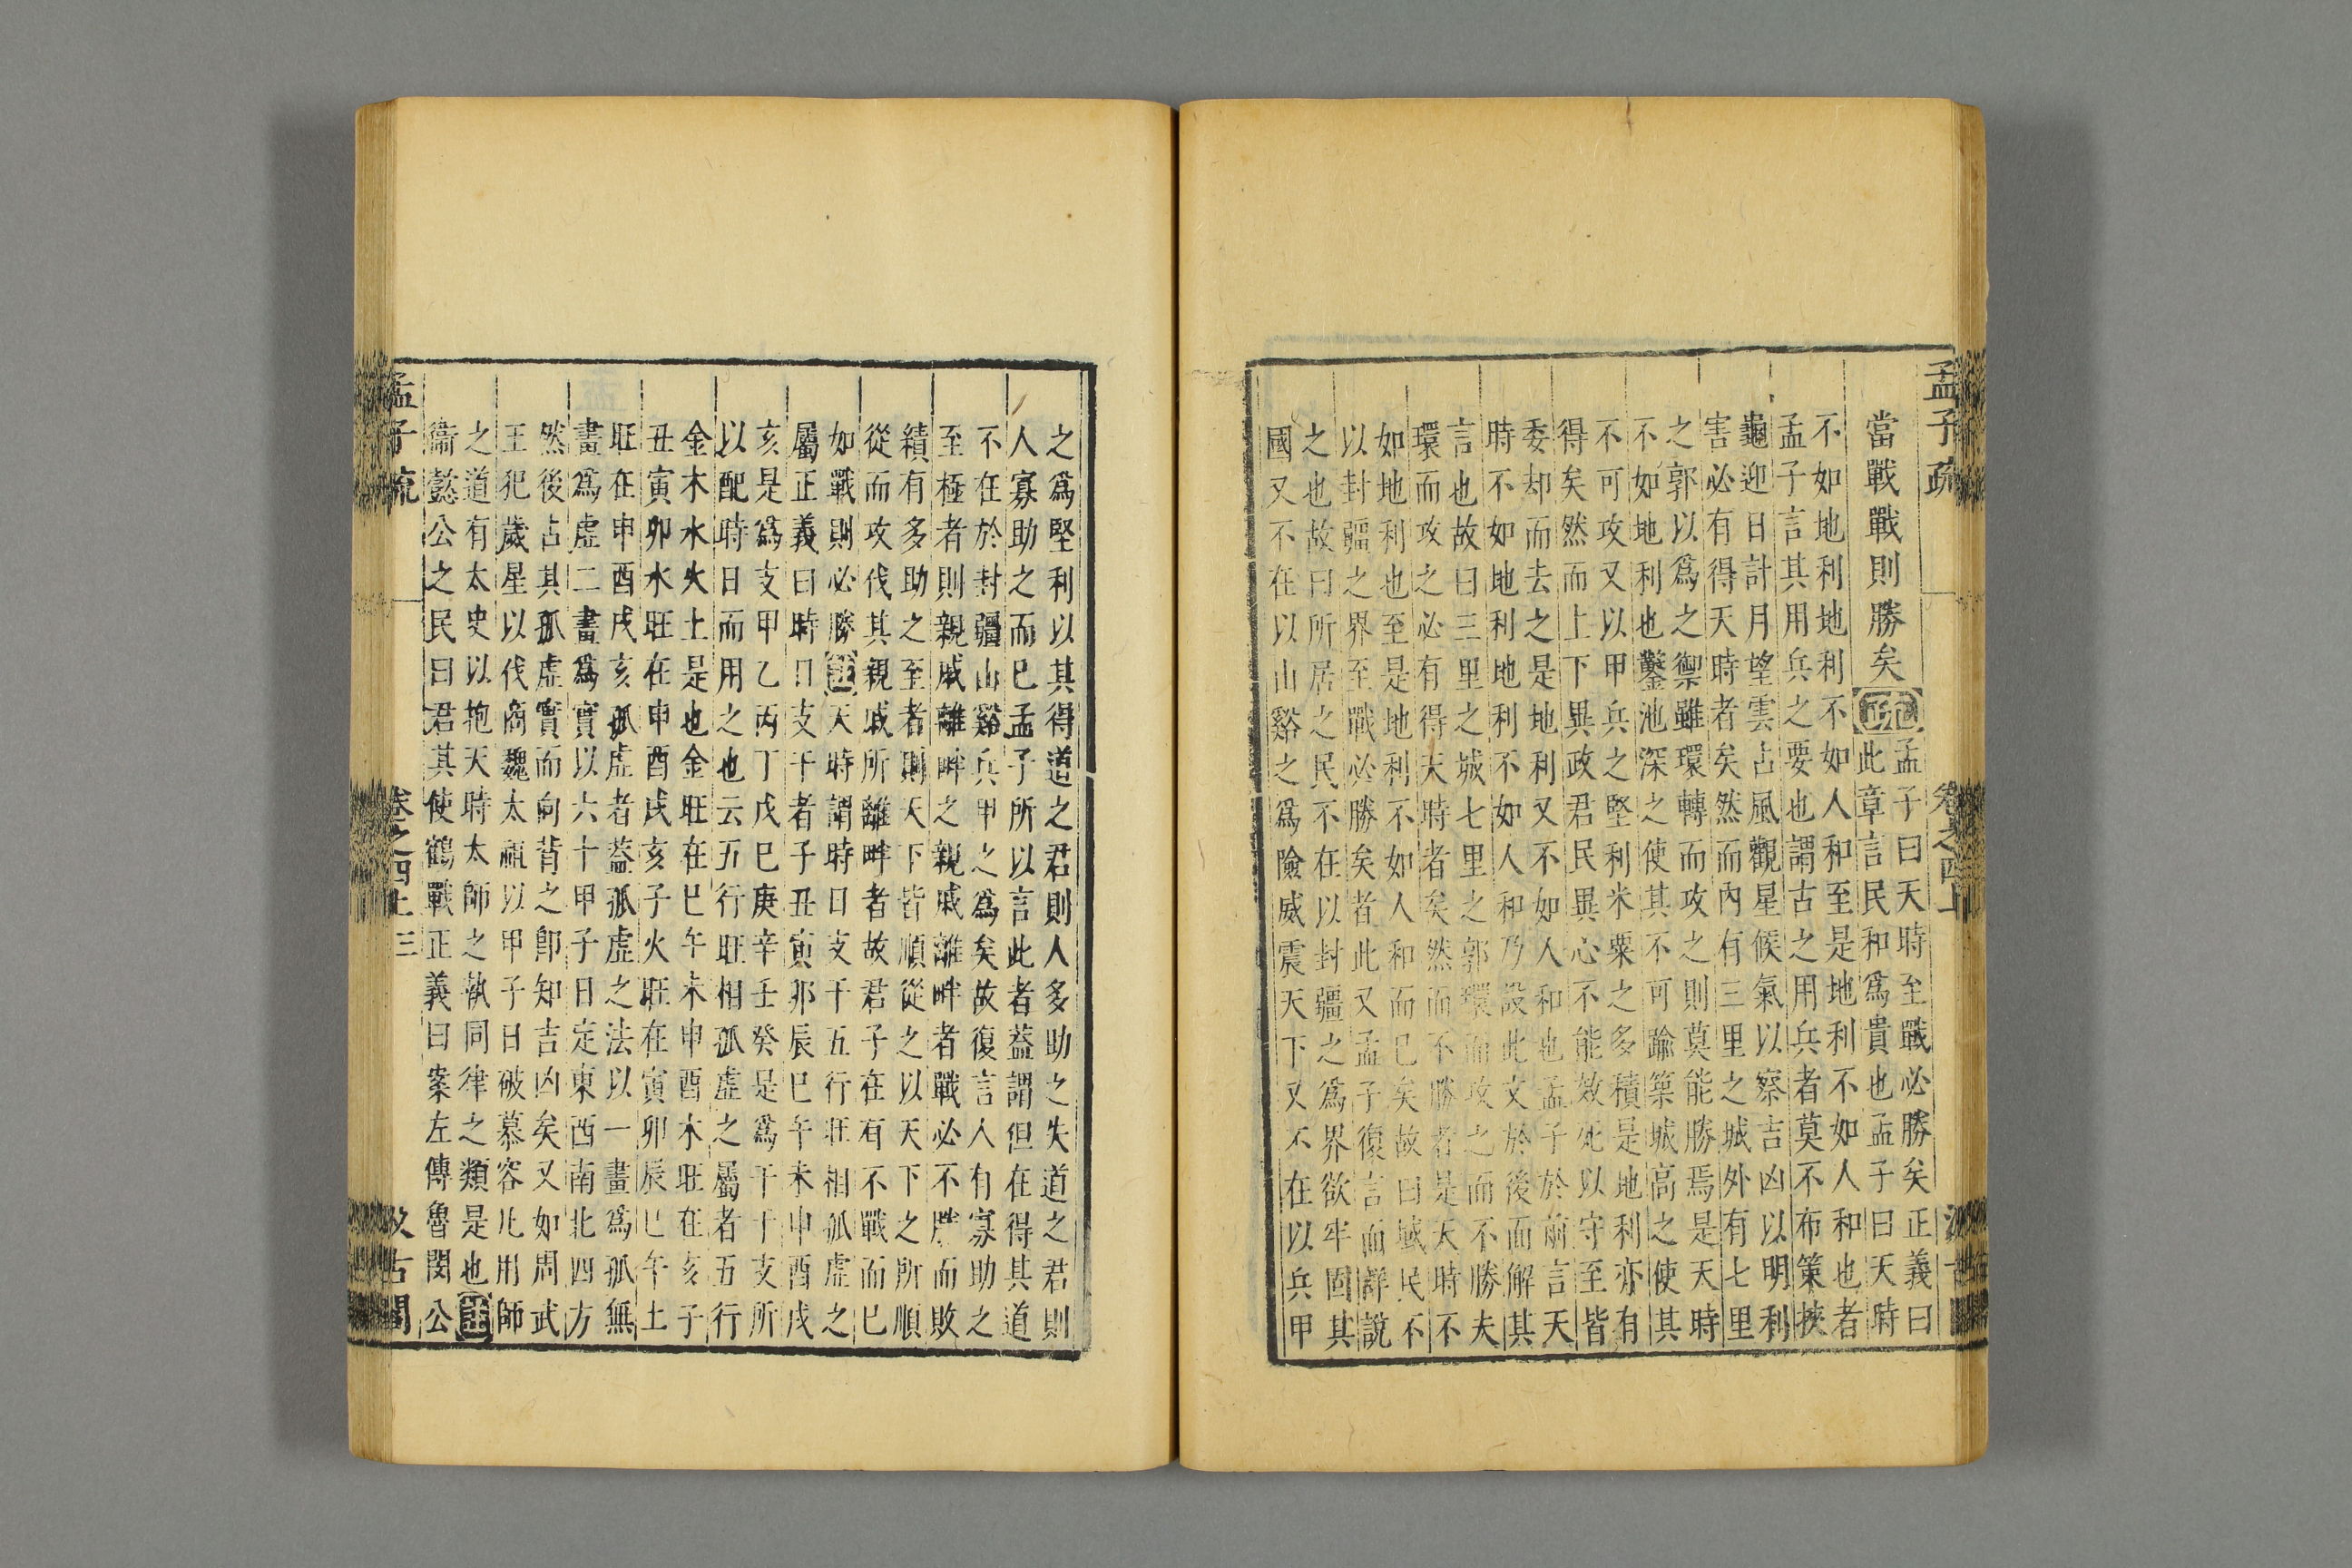 孟子疏 卷之四上
當戰戰則勝矣疏孟子曰天時至戰必勝矣正義曰
此章言民和爲貴也孟子曰天時
不如地利地利不如人和至是地利不如人和也者
孟子言其用兵之要也謂古之用兵者莫不布策挾
龜迎日計月望雲占風觀星候氣以察吉凶以明利
害必有得天時者矣然而內有三里之城外有七里
之郭以爲之禦雖環轉而攻之則莫能勝焉是天時
不如地利也鑿池深之使其不可踰築城高之使其
不可攻又以甲兵之堅利米粟之多積是地利亦有
得矣然而上下異政君民異心不能效死以守至皆
委却而去之是地利又不如人和也孟子於前言天
時不如地利地利不如人和乃設此文於後而解其
言也故曰三里之城七里之郭環而攻之而不勝夫
環而攻之必有得天時者矣然而不勝者是天時不
如地利也至是地利不如人和而已矣故曰域民不
以封疆之界至戰必勝矣者此又孟子復言而詳說
之也故曰所居之民不在以封疆之爲界欲牢固其
國又不在以山谿之爲險威震天下又不在以兵甲
之爲堅利以其得道之君則人多助之失道之君則
人寡助之而已孟子所以言此者蓋謂但在得其道
不在於封疆山谿兵甲之爲矣故復言人有寡助之
至極者則親戚離畔之親戚離畔者戰必不勝而敗
績有多助之至者則天下皆順從之以天下之所順
從而攻伐其親戚所離畔者故君子在有不戰而已
如戰則必勝注天時謂時日支干五行旺相孤虛之
屬正義曰時日支干者子丑寅卯辰巳午未申酉戌
亥是爲支甲乙丙丁戊巳庚辛壬癸是爲干干支所
以配時日而用之也云五行旺相孤虛之屬者五行
金木水火土是也金旺在巳午未申酉木旺在亥子
丑寅卯水旺在申酉戌亥子火旺在寅卯辰巳午土
旺在申酉戌亥孤虛者蓋孤虛之法以一畫爲孤無
畫爲虛二畫爲實以六十甲子日定東西南北四方
然後占其孤虛實而向背之卽知吉凶矣又如周武
王犯歲星以伐商魏太祖以甲子日破慕容凡用師
之道有太史以抱天時太師之執同律之類是也注
衞懿公之民曰君其使鶴戰正義曰案左傳魯閔公
孟子疏 卷之四上 三 汲古閣